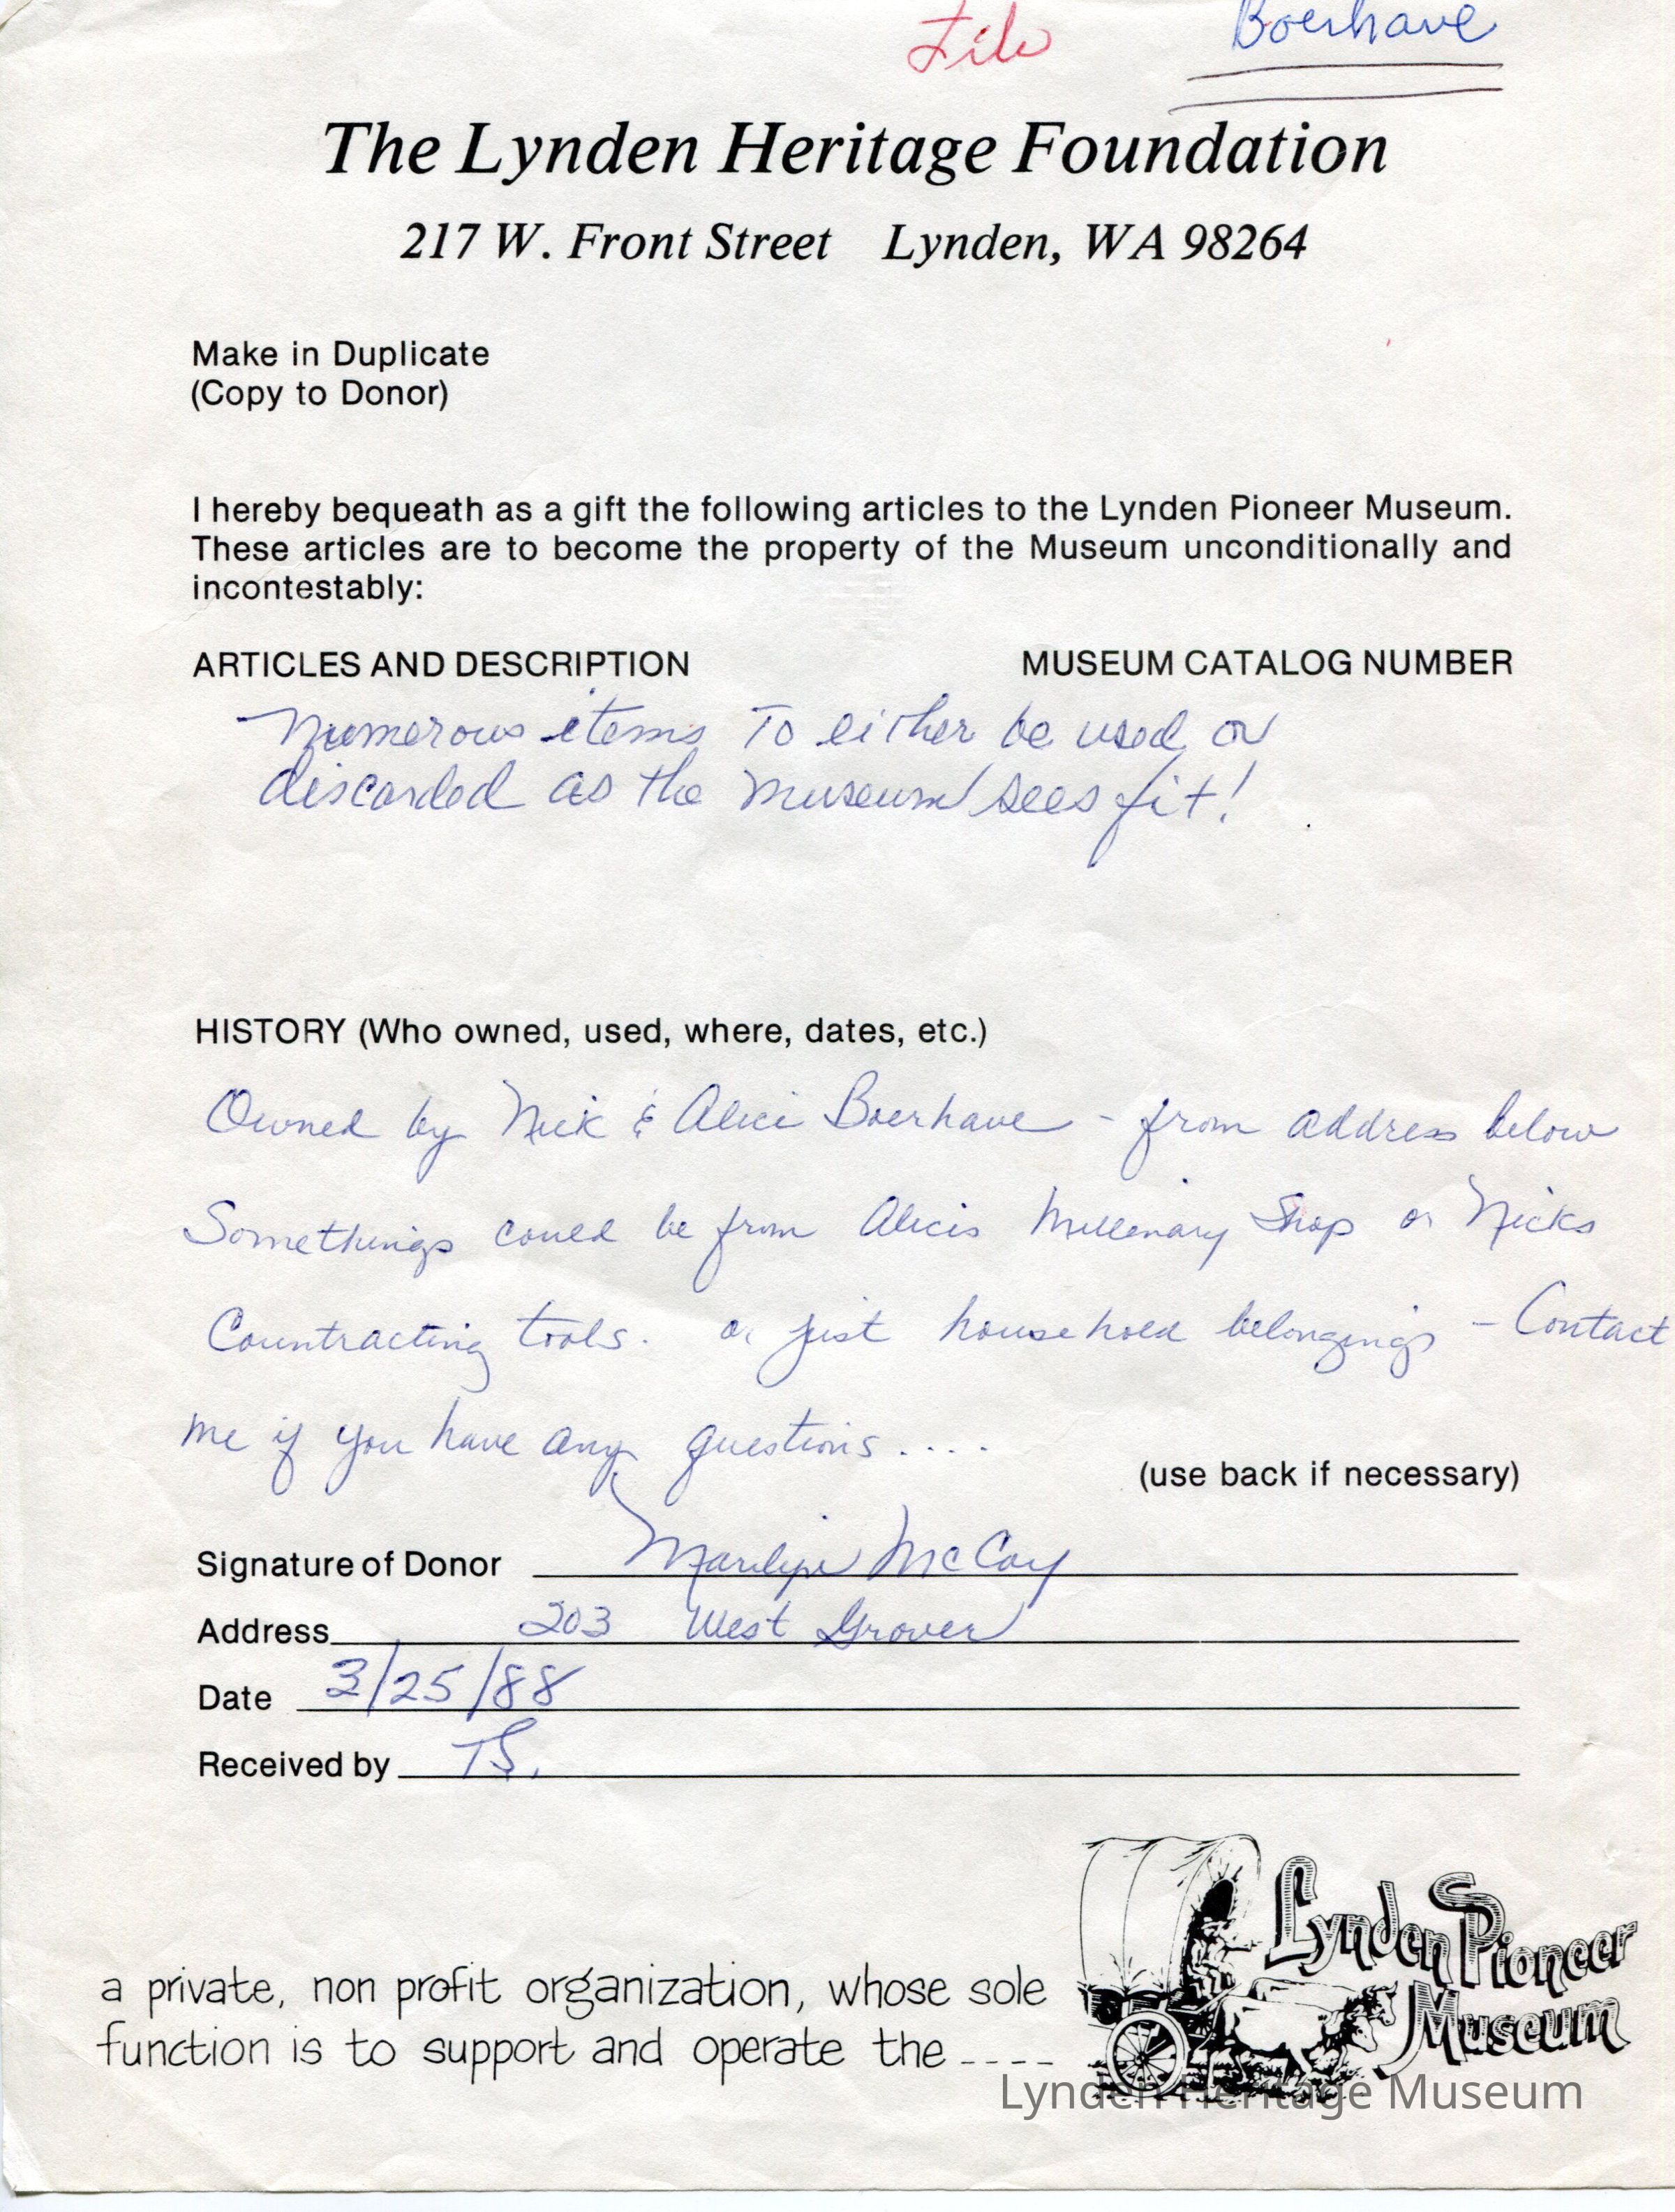 File Boerhave
The Lynden Heritage Foundation
217 W. Front Street Lynden, WA 98264
Make in Duplicate
(Copy to Donor)
I hereby bequeath as a gift the following articles to the Lynden Pioneer Museum.
These articles are to become the property of the Museum unconditionally and
incontestably:
ARTICLES AND DESCRIPTION MUSEUM CATALOG NUMBER
Numerous items To either be used or
discarded as the museum sees fit!
HISTORY (Who owned, used, where, dates, etc.)
Owned by Nick & Alice Boerhave - from address below
Somethings could be from Alices Millenary Shop or Nicks
Countracting tools. or just household belongings - Contact
me if you have any questions....
(use back if necessary)
Signature of Donor Marilyn McCay
Address 203 West Grover
Date 3/25/88
Received by TS.
a private, non profit organization, whose sole
function is to support and operate the ----
Lynden Pioneer
Museum
Lynden Heritage Museum